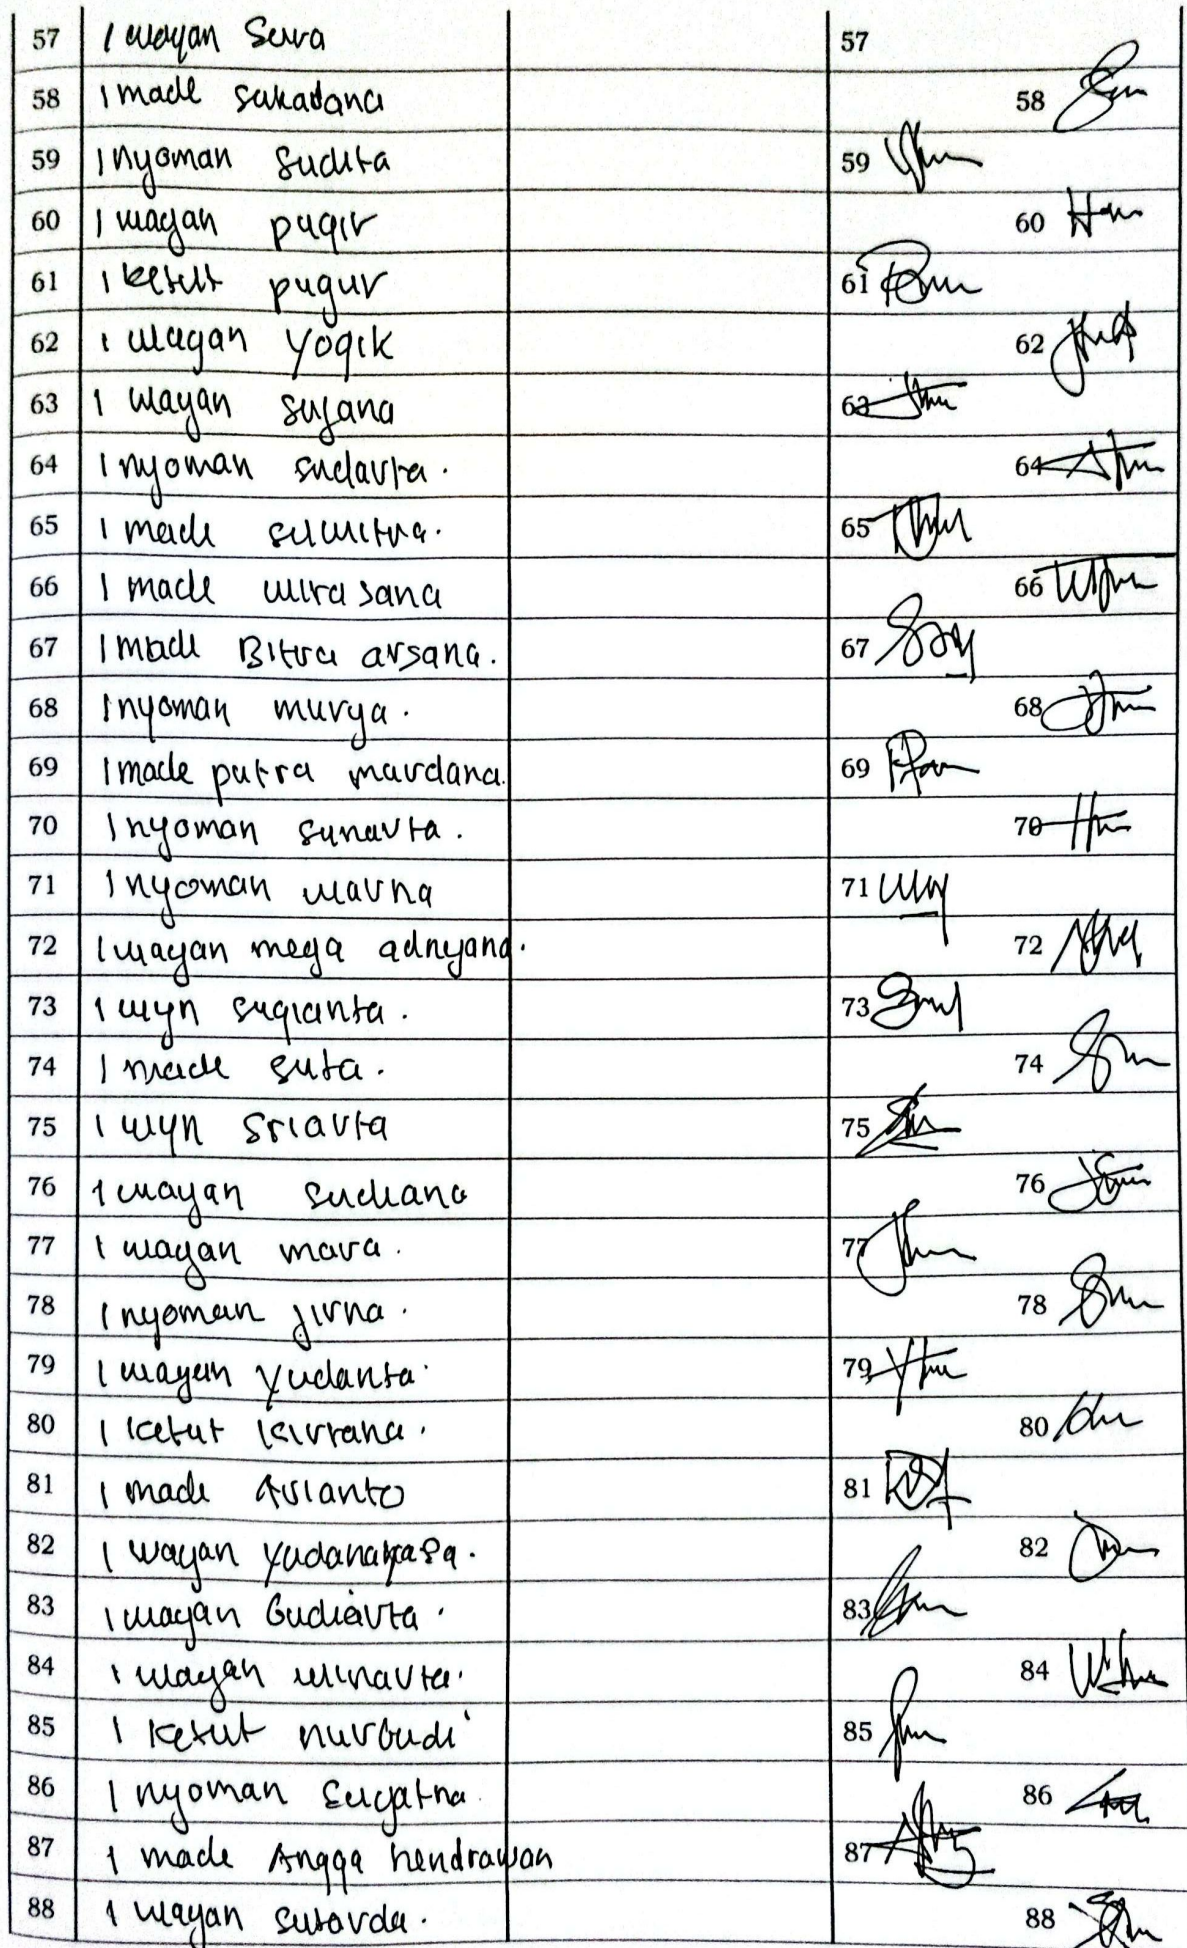 57 I wayan Sura 57
58 I made sukadana 58
59 I nyoman sudita 59
60 I wayan pugir 60
61 I ketut pugur 61
62 I wayan Yogik 62
63 I wayan sujana 63
64 I nyoman sudarta. 64
65 I made sumitra. 65
66 I made wirasana 66
67 I made Bitra arsana. 67
68 I nyoman murya. 68
69 I made putra mardana. 69
70 I nyoman sunarta. 70
71 I nyoman warna 71
72 I wayan mega adnyana. 72
73 I wyn sugianta. 73
74 I made suta. 74
75 I wyn sriarta 75
76 I wayan sudiana 76
77 I wayan mara. 77
78 I nyoman jirna. 78
79 I wayan yudanta. 79
80 I ketut kirtana. 80
81 I made Arianto 81
82 I wayan 82
83 I wayan Budiarta. 83
84 I wayan winarta. 84
85 I ketut nurbudi 85
86 I nyoman sugatna. 86
87 I made Angga hendrawan 87
88 I wayan sutarda. 88